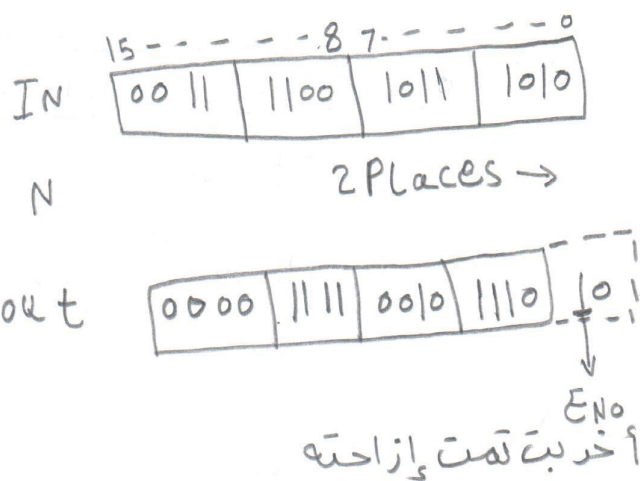 15 - - - - - - 8 7 - - - - - - 0
IN 0011 1100 1011 1010
N 2 Places →
out 0000 1111 0010 1110 10
ENO
أخر بت تمت إزاحته